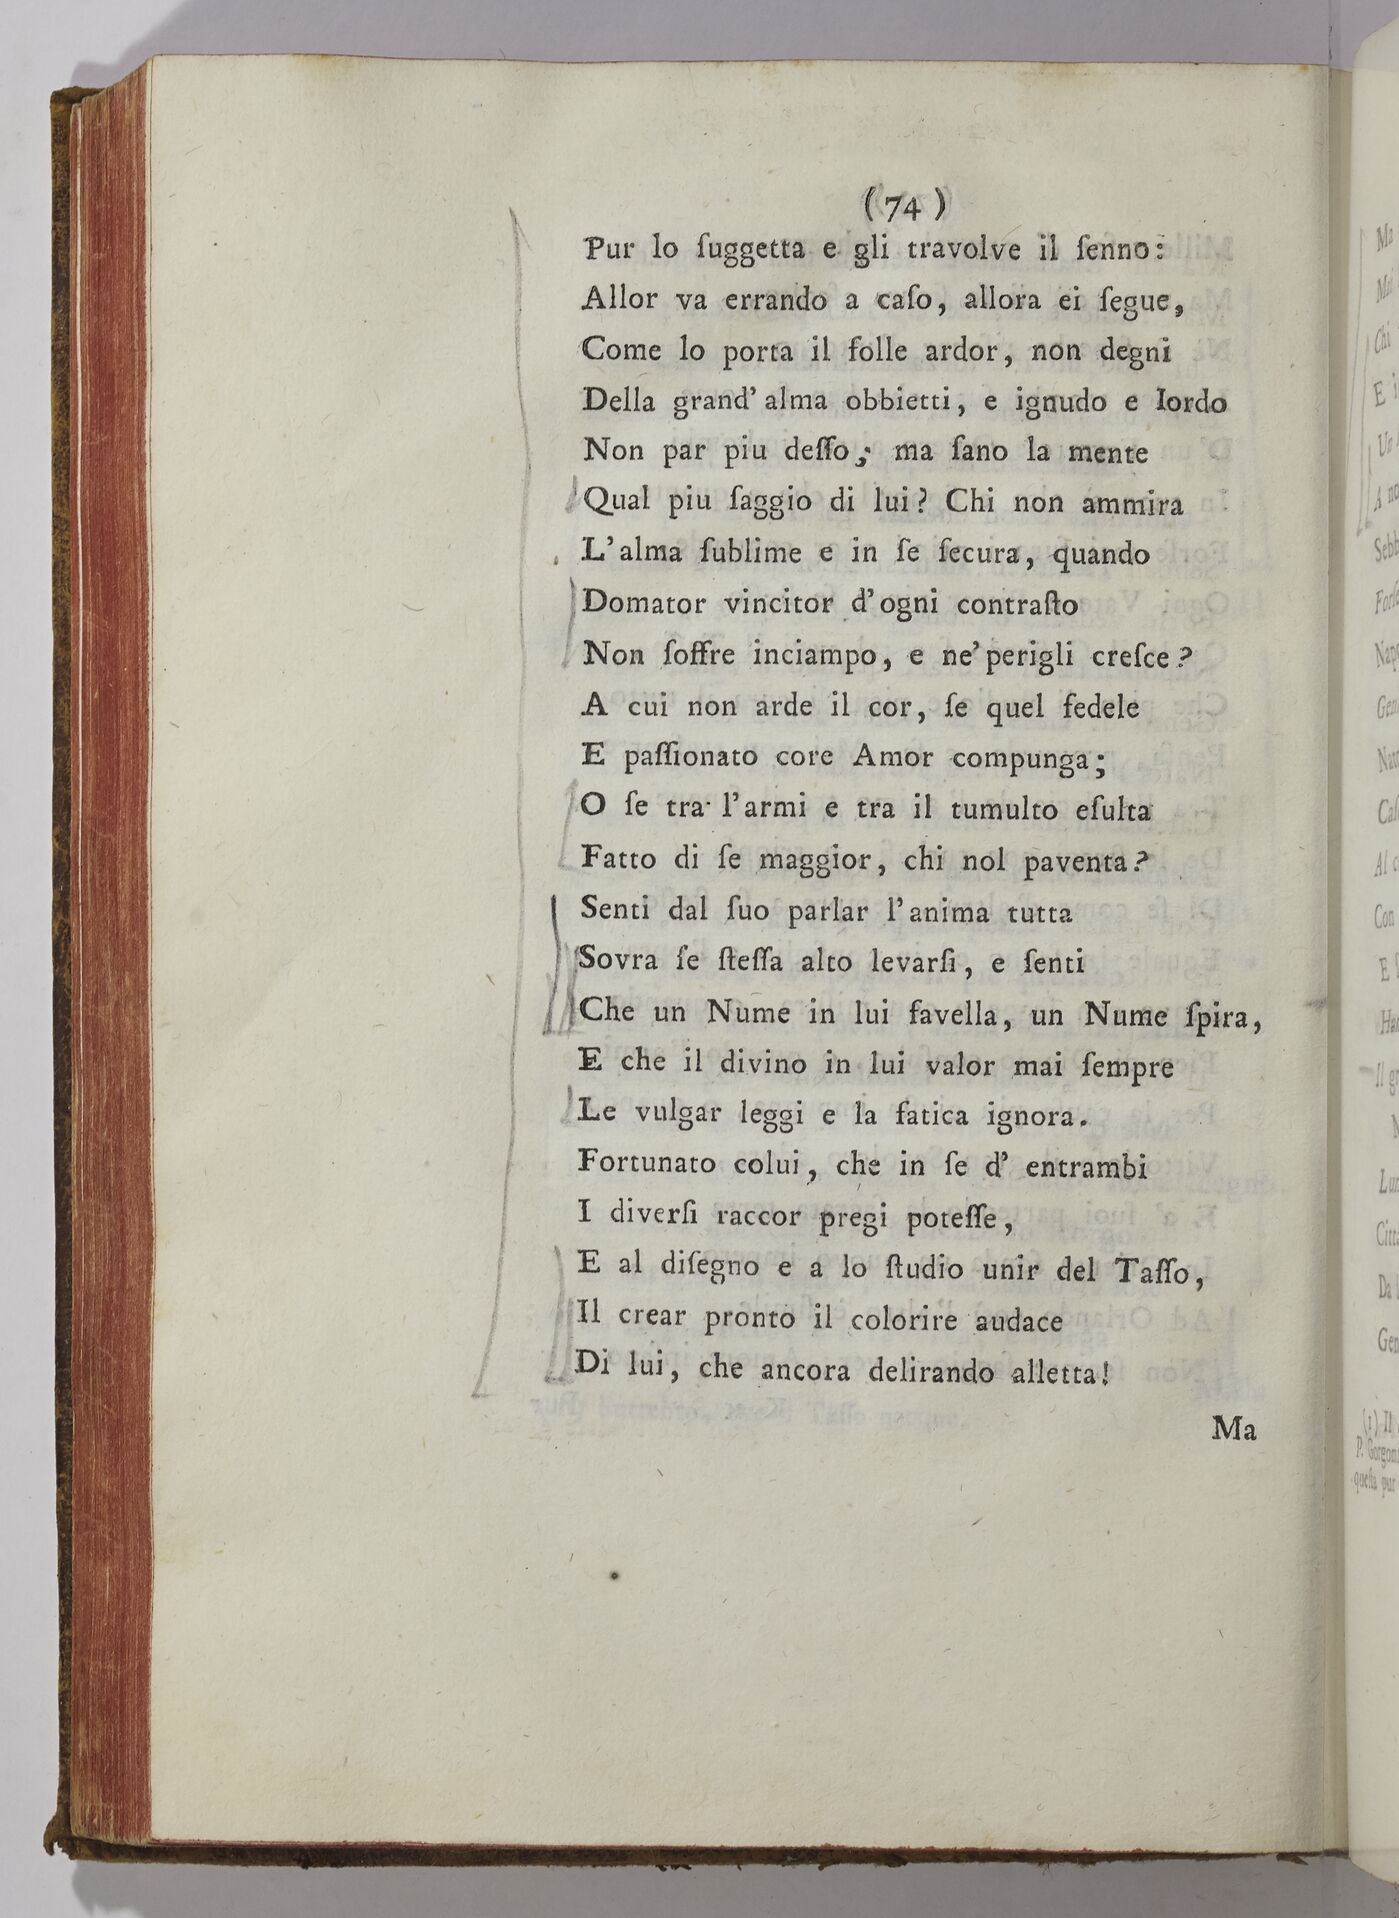 (74)
Pur lo ſuggetta e gli travolve il ſenno:
Allor va errando a caſo, allora ei ſegue,
Come lo porta il folle ardor, non degni
Della grand' alma obbietti, e ignudo e lordo
Non par piu deſſo; ma ſano la mente
Qual piu ſaggio di lui? Chi non ammira
L'alma ſublime e in ſe ſecura, quando
Domator vincitor d'ogni contraſto
Non ſoffre inciampo, e ne'perigli creſce?
A cui non arde il cor, ſe quel fedele
E paſſionato core Amor compunga;
O ſe tra l'armi e tra il tumulto eſulta
Fatto di ſe maggior, chi nol paventa?
Senti dal ſuo parlar l'anima tutta
Sovra ſe ſteſſa alto levarſi, e ſenti
Che un Nume in lui favella, un Nume ſpira,
E che il divino in lui valor mai ſempre
Le vulgar leggi e la fatica ignora.
Fortunato colui, che in ſe d' entrambi
I diverſi raccor pregi poteſſe,
E al diſegno e a lo ſtudio unir del Taſſo,
Il crear pronto il colorire audace
Di lui, che ancora delirando alletta!
Ma
Ma
Chi
E
Un
A
Con
E
Da
(1) Il
P.
queſta pur